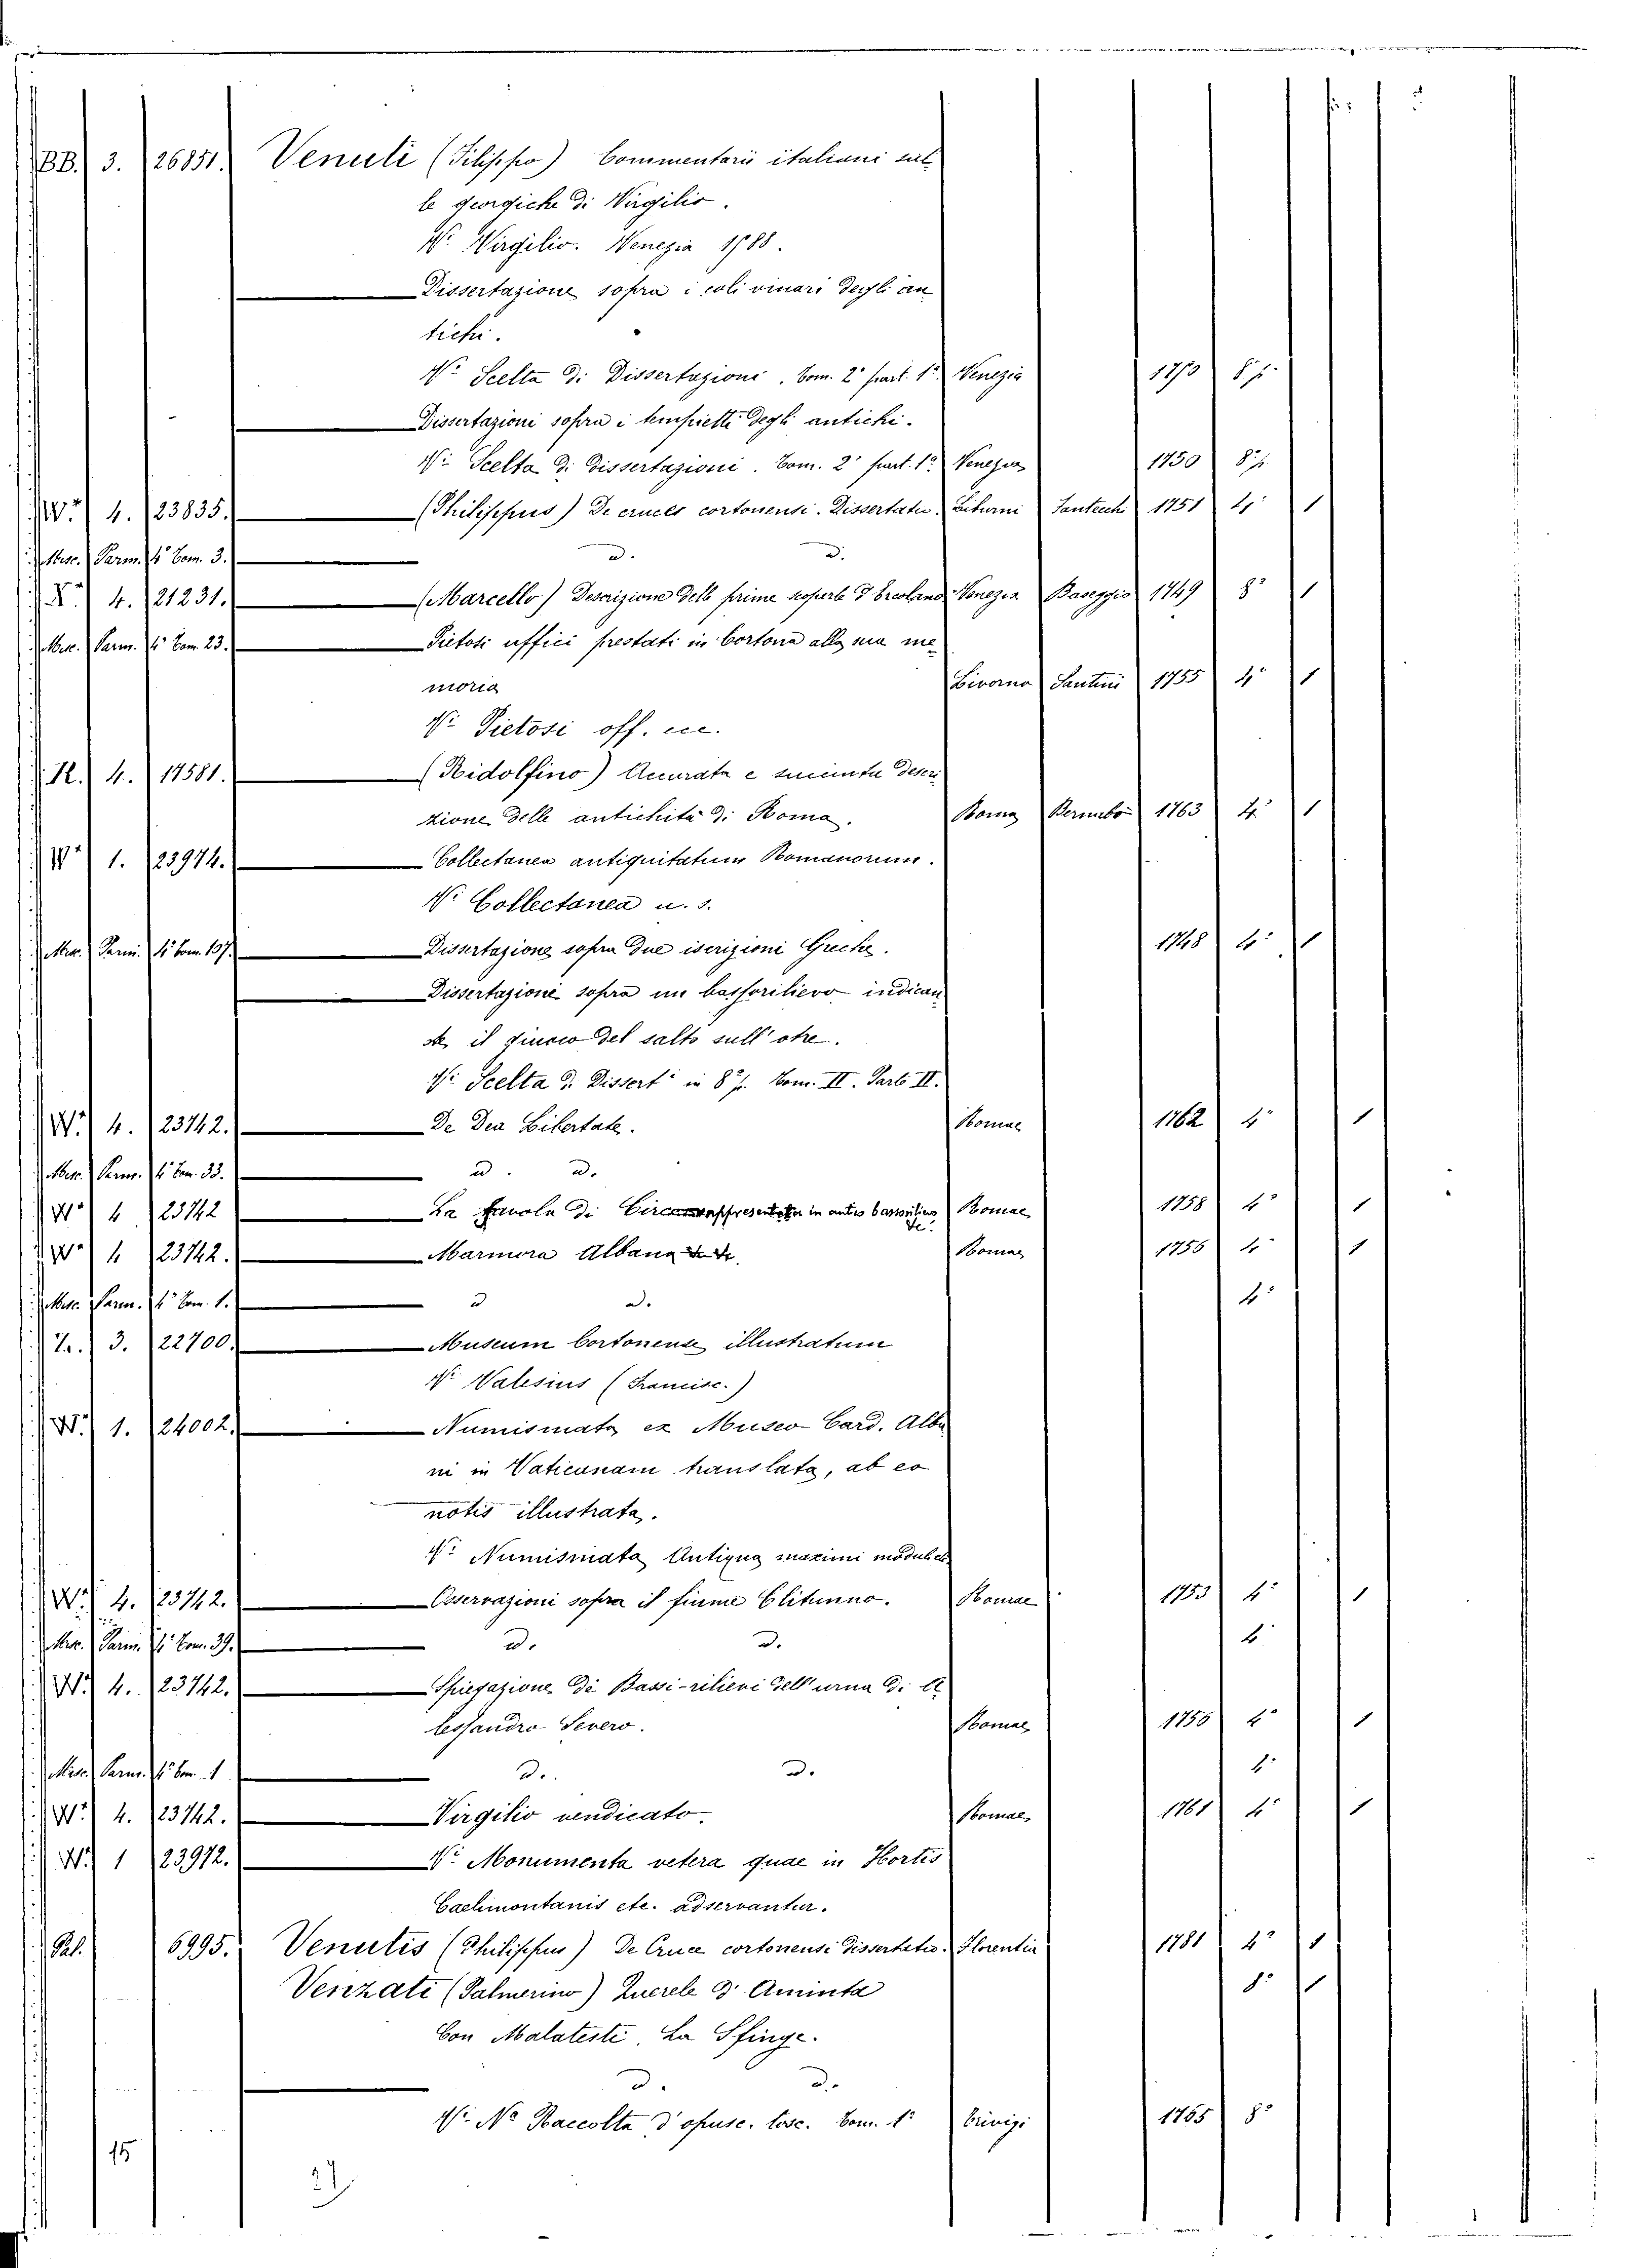 BB. 3. 26851. Venuti (Filippo) Commentarii italiani sul
le georgiche di Virgilio.
Vi Virgilio. Venezia 1788.
Dissertazione sopra i coli vinari degli an
tichi.
Vi Scelta di Dissertazioni. Tom. 2° part. 1a Venezia 1750 8°f.
Dissertazioni sopra i tempietti degli antichi.
Vi Scelta di Dissertazioni. Tom. 2° part. 1a Venezia 1750 8°f.
W. 4. 23835. (Philippus) De cruce cortonensi. Dissertatio. Liburni Santecchi 1751 4° 1
Misc. Parm. 4° Tom. 3. d. d.
X. 4. 21231. (Marcello) Descrizione delle prime scoperte d'Ercolano Venezia Baseggio 1749 8° 1
Misc. Parm. 4° Tom. 23. Pietosi uffici prestati in Cortona alla sua me
moria Livorno Santini 1755 4° 1
Vi Pietosi off. ecc.
R. 4. 17581. (Ridolfino) Accurata e succinta descri
zione delle antichità di Roma. Roma Bernabò 1763 4° 1
W. 1. 23974. Collectanea antiquitatum Romanorum.
Vi Collectanea u. s.
Misc. Parm. 4° Tom. 137. Dissertazione sopra due iscrizioni Greche. 1748 4° 1
Dissertazione sopra un bassorilievo indican
te, il giuoco del salto sull'otre.
Vi Scelta di Dissert. in 8°f. Tom. II. Parte II.
W. 4. 23742. De Dea Libertate. Romae 1762 4° 1
Misc. Parm. 4° Tom. 33. d. d.
W. 4 23742 La favola di Circe rappresentata in antico bassorilievo Romae 1758 4° 1
W. 4 23742. Marmora Albana Romae 1756 4° 1
Misc. Parm. 4° Tom. 1. d d. 4°
T. 3. 22700. Museum Cortonense illustratum
Vi Valesius (Francisc.)
W. 1. 24002. Numismata ex Museo Card. Alba
ni in Vaticanam translata, ab eo
notis illustrata.
Vi Numismata Antiqua maximi moduli
W. 4. 23742. Osservazioni sopra il fiume Clitunno. Romae 1753 4° 1
Misc. Parm. 4° Tom. 39. d. d. 4
W. 4. 23742. Spiegazione de Bassi-rilievi dell'urna di A
lessandro Severo. Romae 1756 4° 1
Misc. Parm. 4° Tom. 1 d. d. 4°
W. 4. 23742. Virgilio vendicato. Romae 1761 4° 1
W. 1 23972. Vi Monumenta vetera quae in Hortis
Caelimontanis etc. adservantur.
Pal. 6995. Venutis (Philippus) De Cruce cortonensi dissertatio. Florentiae 1781 4° 1
Venzati (Palmerino) Querele d'Aminta 8° 1
Con Malatesti. La Sfinge.
d. d.
Vi No Raccolta d'opusc. tosc. Tom. 1° Parigi 1765 8°
15
27